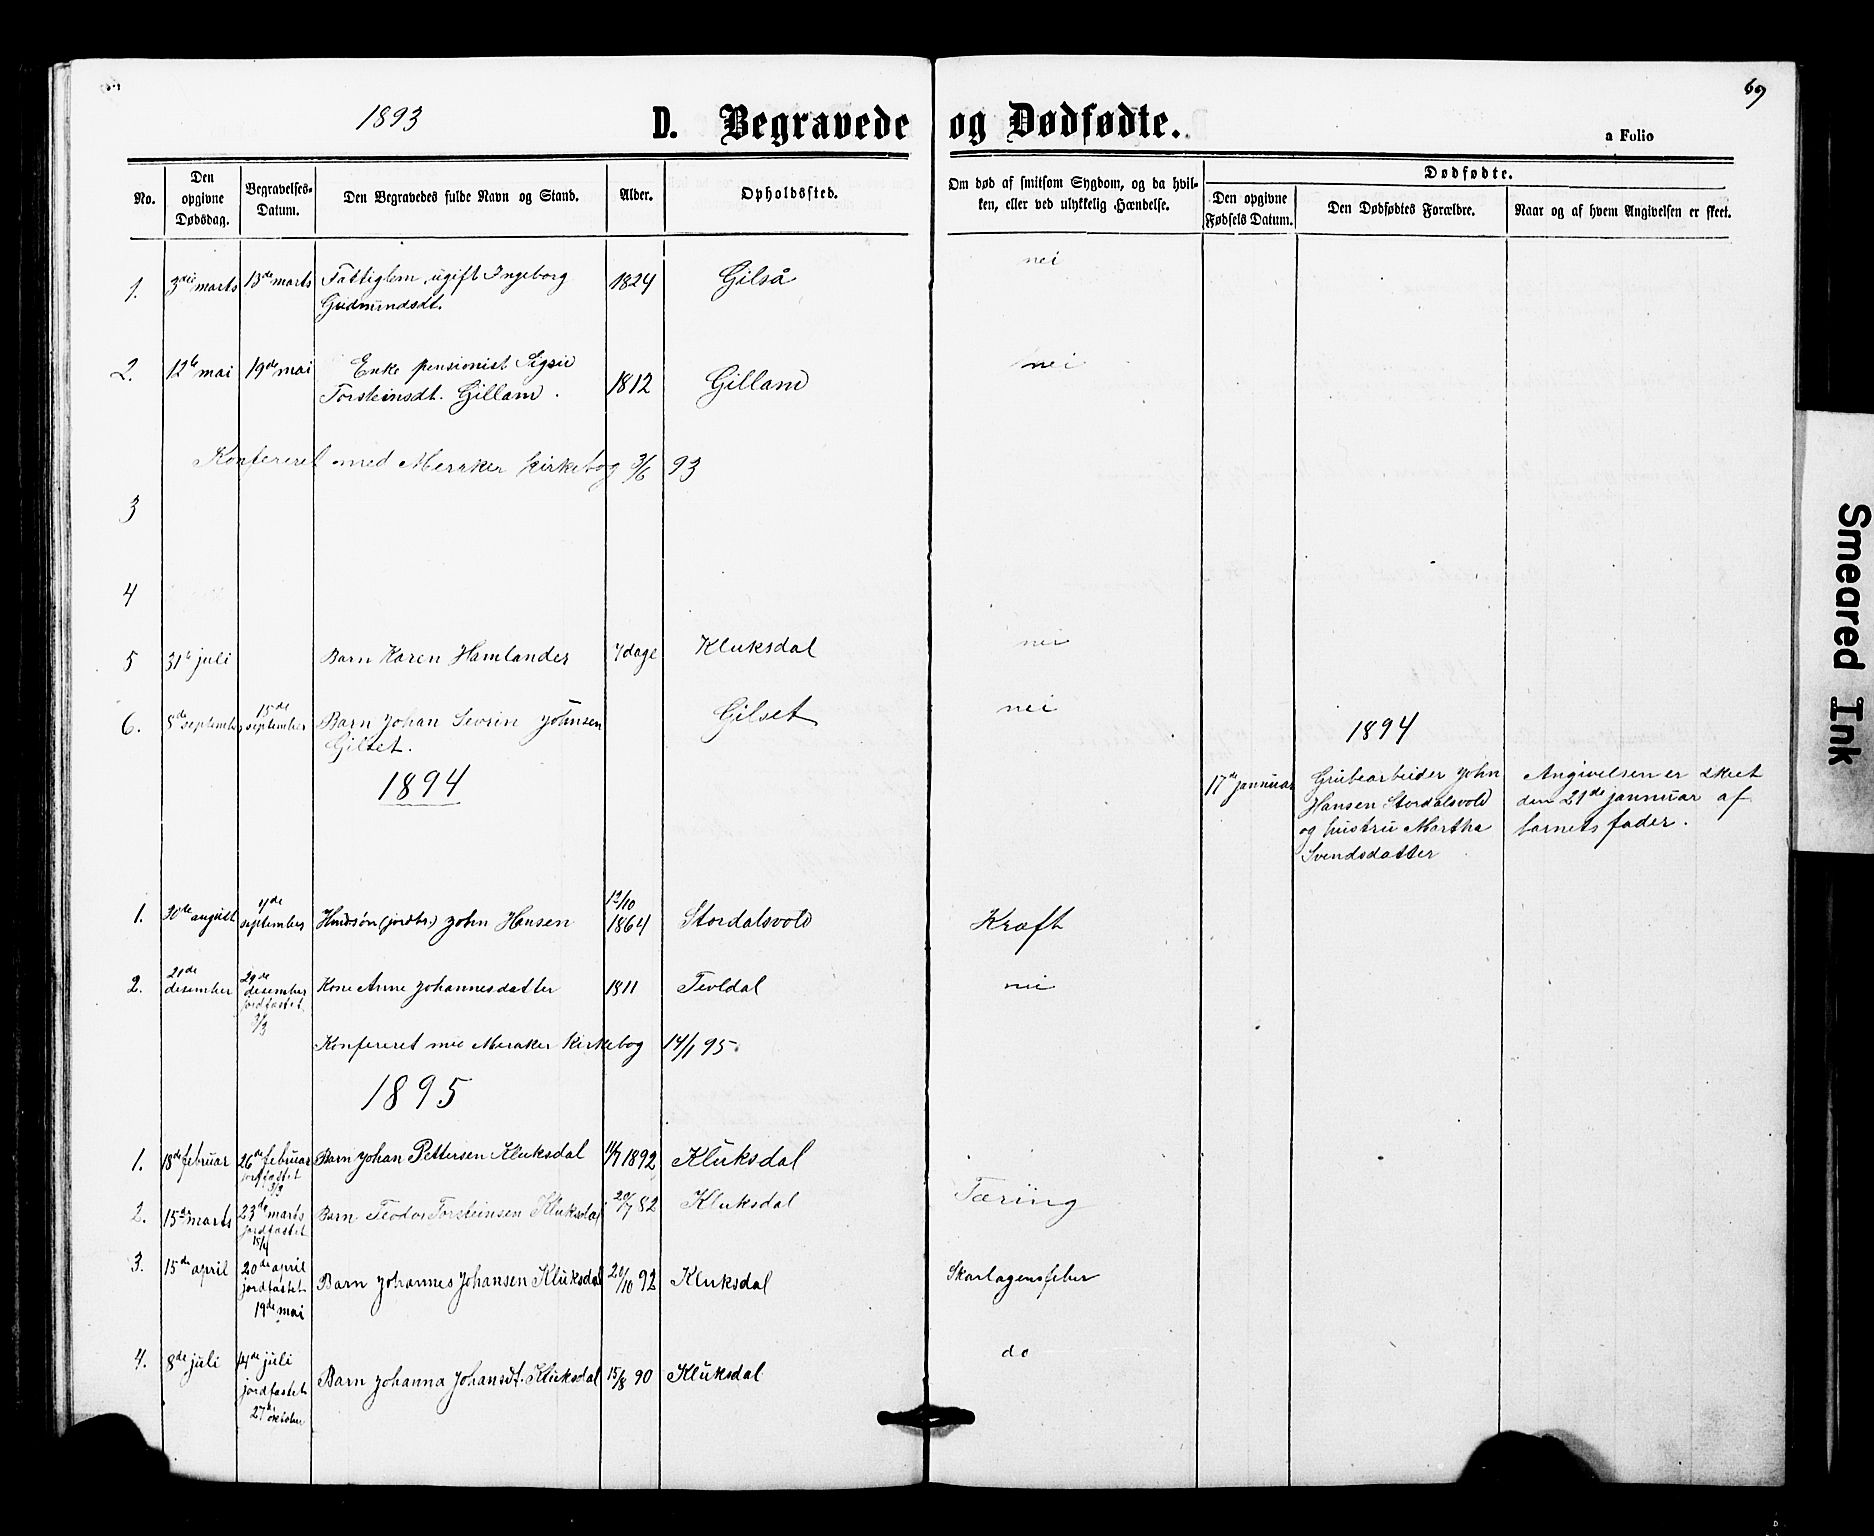 69
1893
D. Begravede og Dødfødte.
a Folio
No.
Den opgivne Dødsdag.
Begravelses-Datum.
Den Begravedes fulde Navn og Stand.
Alder.
Opholdssted.
Om død af smitsom Sygdom, og da hvil-
ken, eller ved ulykkelig Hændelse.
Dødfødte.
Den opgivne Fødsels Datum.
Den Dødfødtes Forældre.
Naar og af hvem Angivelsen er skeet.
1. 3die marts 13de marts Fattiglem, ugift Ingeborg 1824 Gilså nei
Gudmundsdt.
2. 12te mai 19de mai Enke pensionist Sigrid 1812 Gilland nei
Torsteinsdt. Gilland.
Konfereret med Meraker kirkebog 3/6 93
3
4
5 31te juli Barn Karen Hamlander 7 dage Kluksdal nei
6. 8de september 15de september Barn Johan Sevrin Johnsen Gilset nei
Gilset.
1894
1894
17de januar Grubearbeider John Angivelsen er skeet
Hansen Stordalsvold den 21de januar af
og hustru Martha barnets fader.
Svendsdatter
1. 30de august 7de september Husbsøn (jordbr.) John Hansen 12/10 1864 Stordalsvold Kræft
2. 21de desember 29de desember Kone Anne Johannesdatter 1811 Tevldal nei
jordfæstet
3/3
Konfereret med Meraker kirkebog 14/1 95.
1895
1. 18de februar 26de februar Barn Johan Pettersen Kluksdal 11/7 1892 Kluksdal
jordfæstet
3/3
2. 15de marts 23de marts Barn Teodor Torsteinsen Kluksdal 20/7 82 Kluksdal Tæring
jordfæstet
15/4
3. 15de april 20de april Barn Johannes Johansen Kluksdal 21/10 92 Kluksdal Skarlagensfeber
jordfæstet
19de mai
4. 8de juli 14de juli Barn Johanna Johansdt. Kluksdal 15/8 90 Kluksdal do
jordfæstet
27de oktober
Smeared Ink